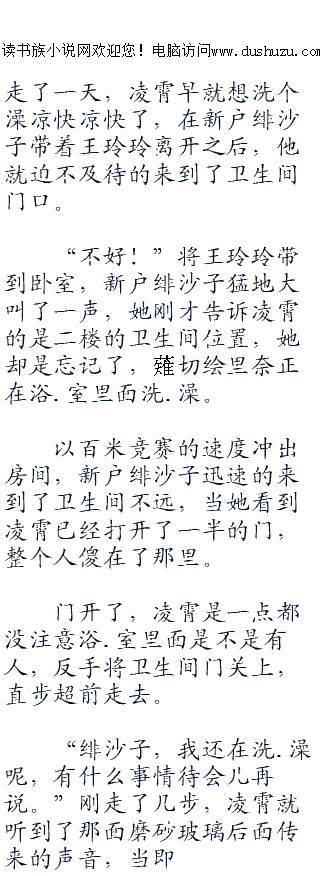 读书族小说网欢迎您！电脑访问www.dushuzu.com
走了一天，凌霄早就想洗个
澡凉快凉快了，在新户绯沙
子带着王玲玲离开之后，他
就迫不及待的来到了卫生间
门口。
“不好！”将王玲玲带
到卧室，新户绯沙子猛地大
叫了一声，她刚才告诉凌霄
的是二楼的卫生间位置，她
却是忘记了，薙切绘里奈正
在浴.室里面洗.澡。
以百米竞赛的速度冲出
房间，新户绯沙子迅速的来
到了卫生间不远，当她看到
凌霄已经打开了一半的门，
整个人傻在了那里。
门开了，凌霄是一点都
没注意浴.室里面是不是有
人，反手将卫生间门关上，
直步超前走去。
“绯沙子，我还在洗.澡
呢，有什么事情待会儿再
说。”刚走了几步，凌霄就
听到了那面磨砂玻璃后面传
来的声音，当即